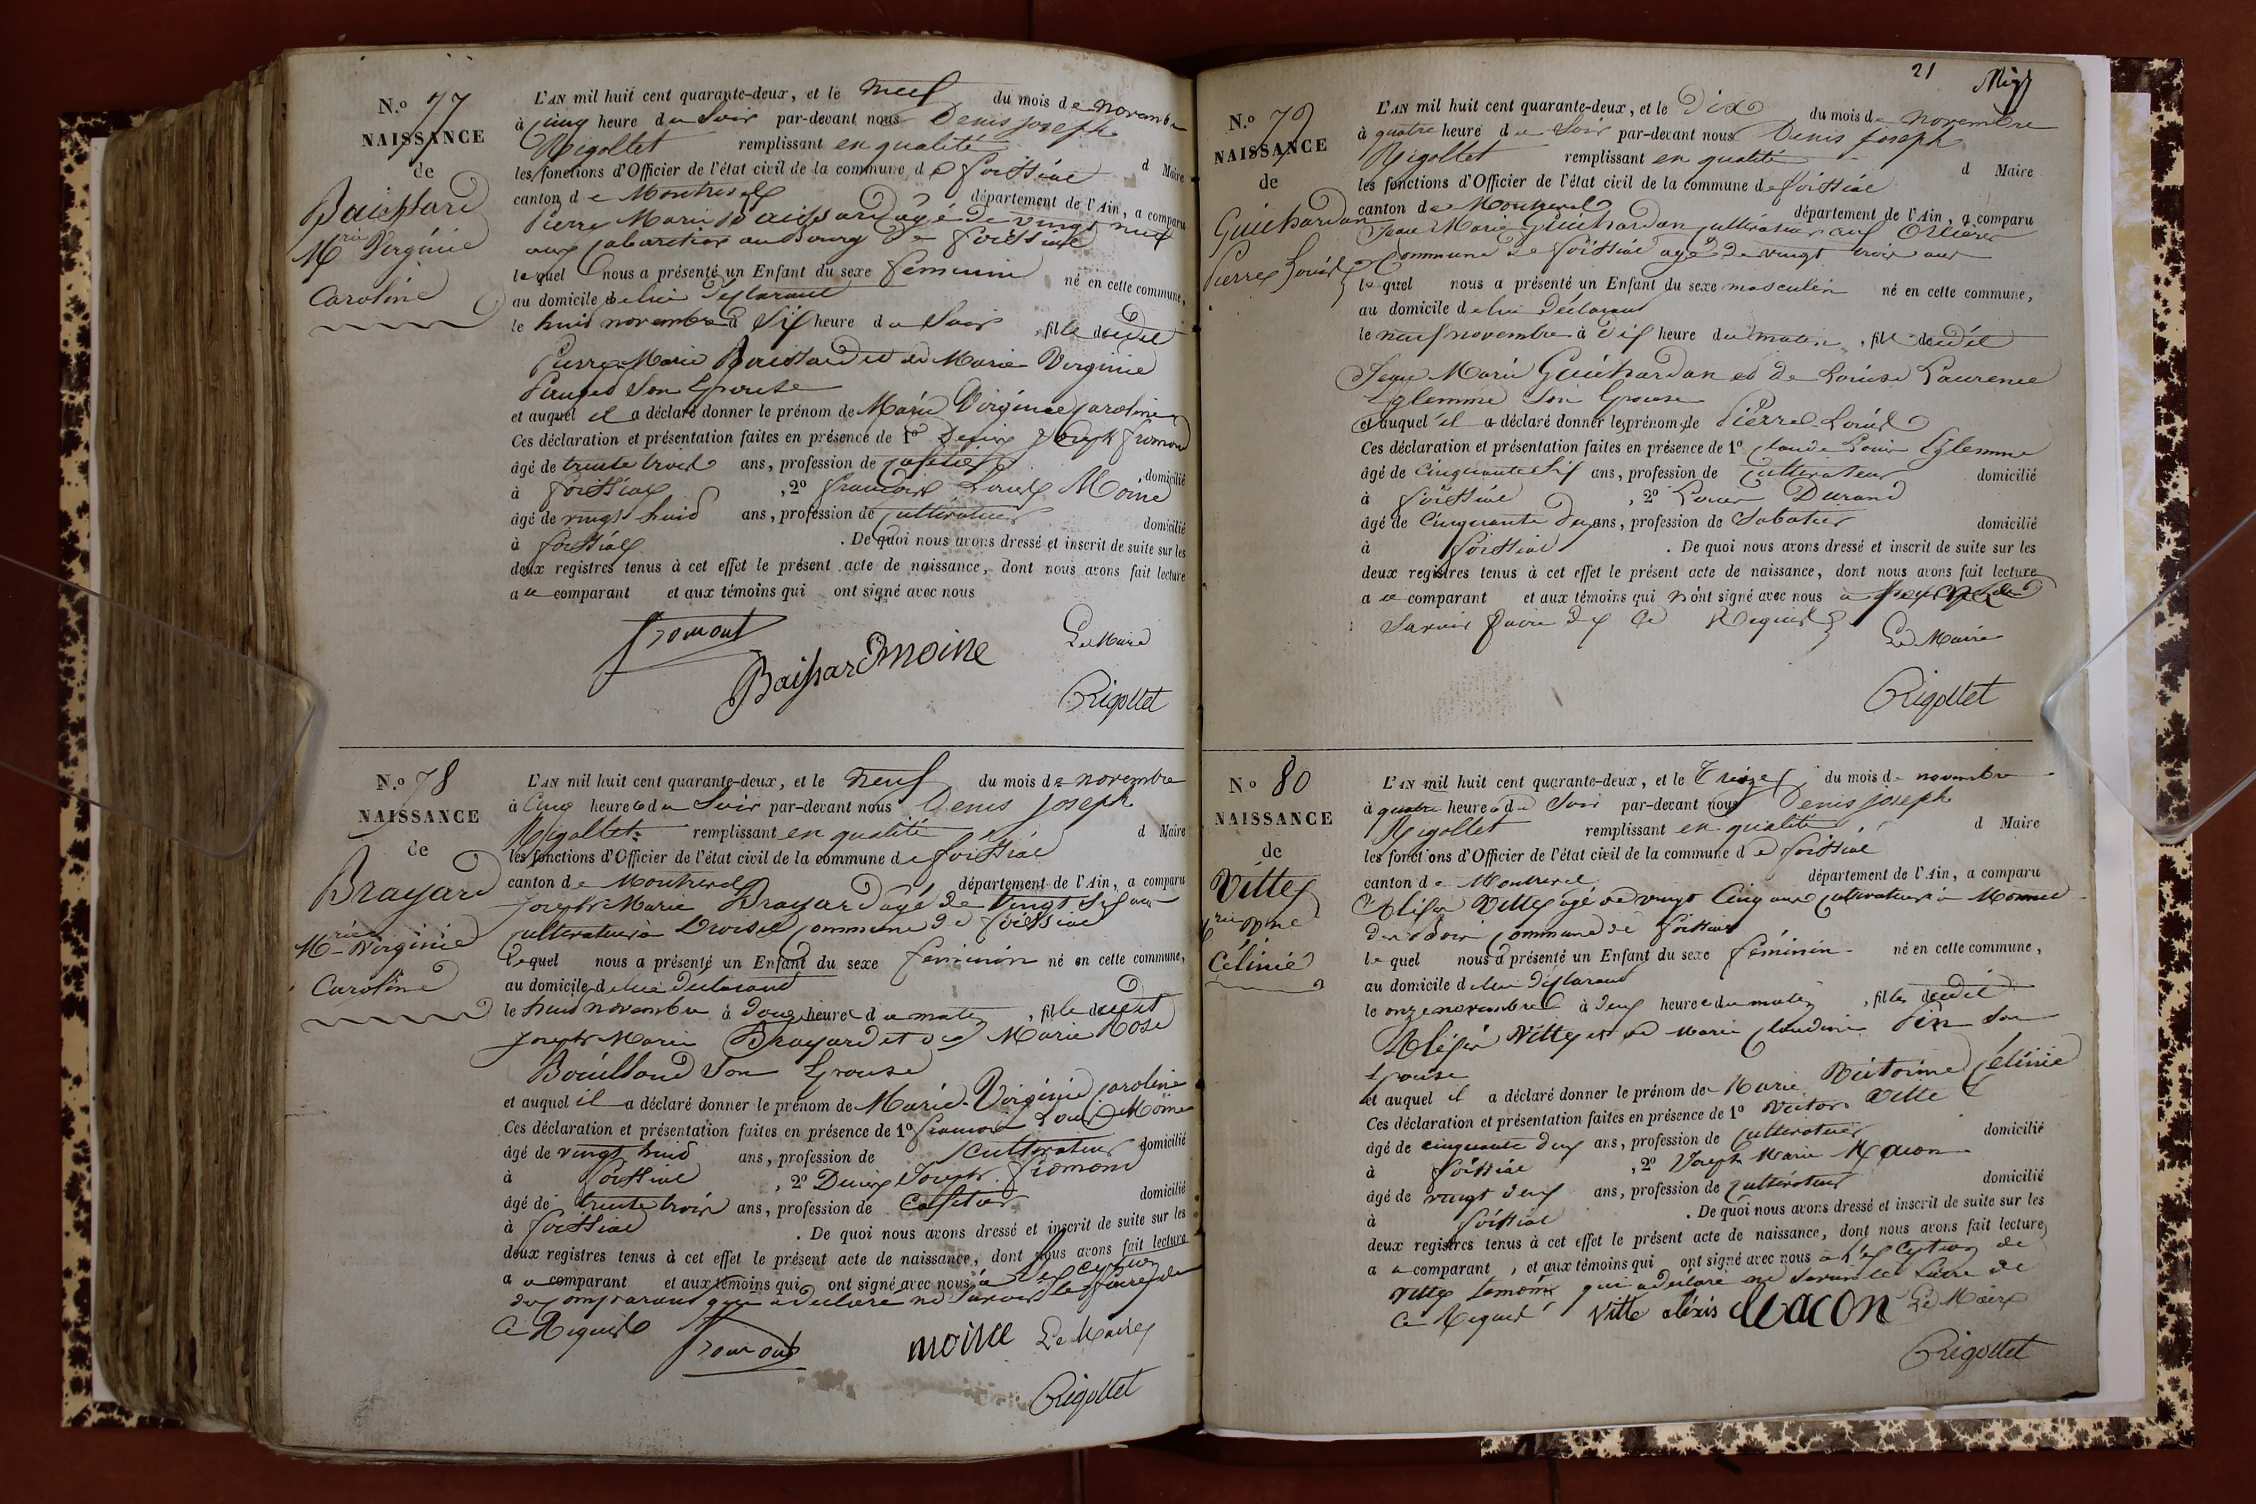 N.º 77
NAISSANCE
de
Baissard
Mrie Virginie
Caroline
L'AN mil huit cent quarante-deux, et le neuf du mois de novembre
à cinq heure du Soir par-devant nous Denis joseph
Rigollet remplissant en qualité d Maire
les fonctions d'Officier de l'état civil de la commune de foissiat
canton de Montrevel département de l'Ain, a comparu
Pierre Marie Baissard agé de vingt neuf
ans cabaretier au Bourg de foissiat
lequel nous a présenté un Enfant du sexe féminin né en cette commune,
au domicile de lui déclarant
le huit novembre à Six heure du Soir, fille dudit
Pierre Marie Baissard et de Marie Virginie
son Epouse
et auquel il a déclaré donner le prénom de Marie Virginie caroline
Ces déclaration et présentation faites en présence de 1º Denis Joseph fromont
âgé de trente trois ans, profession de cafetier, domicilié
à foissiat, 2º françois Louis Moine
âgé de vingt huit ans, profession de cultivateur domicilié
à foissiat. De quoi nous avons dressé et inscrit de suite sur les
deux registres tenus à cet effet le présent acte de naissance, dont nous avons fait lecture
au comparant et aux témoins qui ont signé avec nous
Le Maire
fromont
Baissard moine
Rigollet
N.º 78
NAISSANCE
de
Brayard
Mrie Virginie
Caroline
L'AN mil huit cent quarante-deux, et le neuf du mois de novembre
à Cinq heure du Soir par-devant nous Denis joseph
Rigollet remplissant en qualité d Maire
les fonctions d'Officier de l'état civil de la commune de foissiat
canton de Montrevel département de l'Ain, a comparu
joseph Marie Brayard agé de vingt Six ans
cultivateur à commune de foissiat
Lequel nous a présenté un Enfant du sexe féminin né en cette commune,
au domicile de lui déclarant
le huit novembre à douze heure du matin, fille dudit
joseph Marie Brayard et de Marie Rose
Bouilloud son Epouse
et auquel il a déclaré donner le prénom de Marie Virginie caroline
Ces déclaration et présentation faites en présence de 1º françois Louis Moine
âgé de vingt huit ans, profession de cultivateur domicilié
à foissiat, 2º Denis Joseph fromont
âgé de trente trois ans, profession de cafetier domicilié
à foissiat. De quoi nous avons dressé et inscrit de suite sur les
deux registres tenus à cet effet le présent acte de naissance, dont nous avons fait lecture
au comparant et aux témoins qui ont signé avec nous à l'exception
du comparant qui a déclaré ne savoir le faire de
ce Requis
fromont moine Le Maire
Rigollet
21
N.º 79
NAISSANCE
de
Guichardan
Pierre Louis
L'AN mil huit cent quarante-deux, et le Dix du mois de novembre
à quatre heure du Soir par-devant nous Denis joseph
Rigollet remplissant en qualité d Maire
les fonctions d'Officier de l'état civil de la commune de foissiat
canton de Montrevel département de l'Ain, a comparu
Jean Marie Guichardan cultivateur aux
Commune de foissiat agé de vingt trois ans
lequel nous a présenté un Enfant du sexe masculin né en cette commune,
au domicile de lui Déclarant
le neuf novembre à dix heure du matin, fils dudit
Jean Marie Guichardan et de Louise Laurence
Eglemme son Epouse
et auquel il a déclaré donner le prénom de Pierre Louis
Ces déclaration et présentation faites en présence de 1º claude Louis Eglemme
âgé de cinquante Six ans, profession de Cultivateur domicilié
à foissiat, 2º Louis Durand
âgé de cinquante deux ans, profession de Sabotier domicilié
à foissiat. De quoi nous avons dressé et inscrit de suite sur les
deux registres tenus à cet effet le présent acte de naissance, dont nous avons fait lecture
au comparant et aux témoins qui n'ont signé avec nous
savoir faire de ce Requis
Le Maire
Rigollet
Nº 80
NAISSANCE
de
Ville
Mrie Vine
Célinie
L'AN mil huit cent quarante-deux, et le Treize du mois de novembre
à quatre heure du Soir par-devant nous Denis joseph
Rigollet remplissant en qualité d Maire
les fonctions d'Officier de l'état civil de la commune de foissiat
canton de Montrevel département de l'Ain, a comparu
Aléxis Ville agé de vingt Cinq ans cultivateur à
commune de foissiat
lequel nous a présenté un Enfant du sexe féminin né en cette commune,
au domicile de lui déclarant
le onze novembre à deux heure du matin, fille dudit
Aléxis Ville et de Marie Claudine Pin son
Epouse
et auquel il a déclaré donner le prénom de Marie Victorine Célinie
Ces déclaration et présentation faites en présence de 1º Victor Ville
âgé de cinquante deux ans, profession de cultivateur domicilié
à foissiat, 2º Joseph Marie Macon
âgé de vingt deux ans, profession de cultivateur domicilié
à foissiat. De quoi nous avons dressé et inscrit de suite sur les
deux registres tenus à cet effet le présent acte de naissance, dont nous avons fait lecture
au comparant, et aux témoins qui ont signé avec nous à l'exception de
Ville témoin qui a déclaré ne savoir le faire de
ce Requis Ville aléxis Macon Le Maire
Rigollet